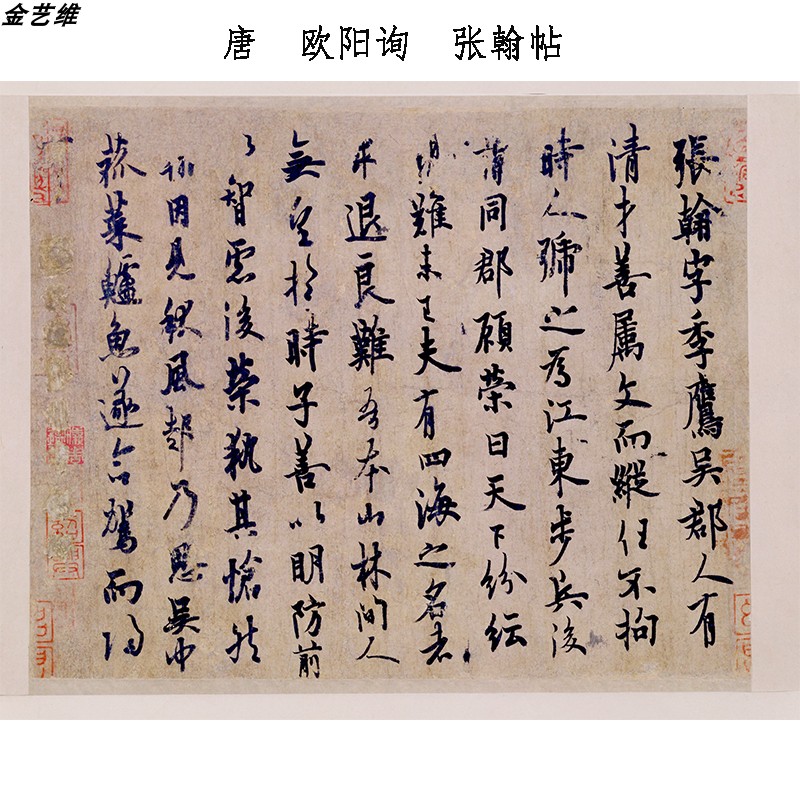 金艺维
唐 欧阳询 张翰帖
張翰字季鷹吳郡人有
清才善属文而縱任不拘
時人號之為江東步兵後
謂同郡顧榮曰天下紛紜
禍難未已夫有四海之名者
求退良難吾本山林間人
無望於時子善以明防前
以智慮後榮執其愴然
翰因見秋風起乃思吳中
菰菜鱸魚遂命駕而歸